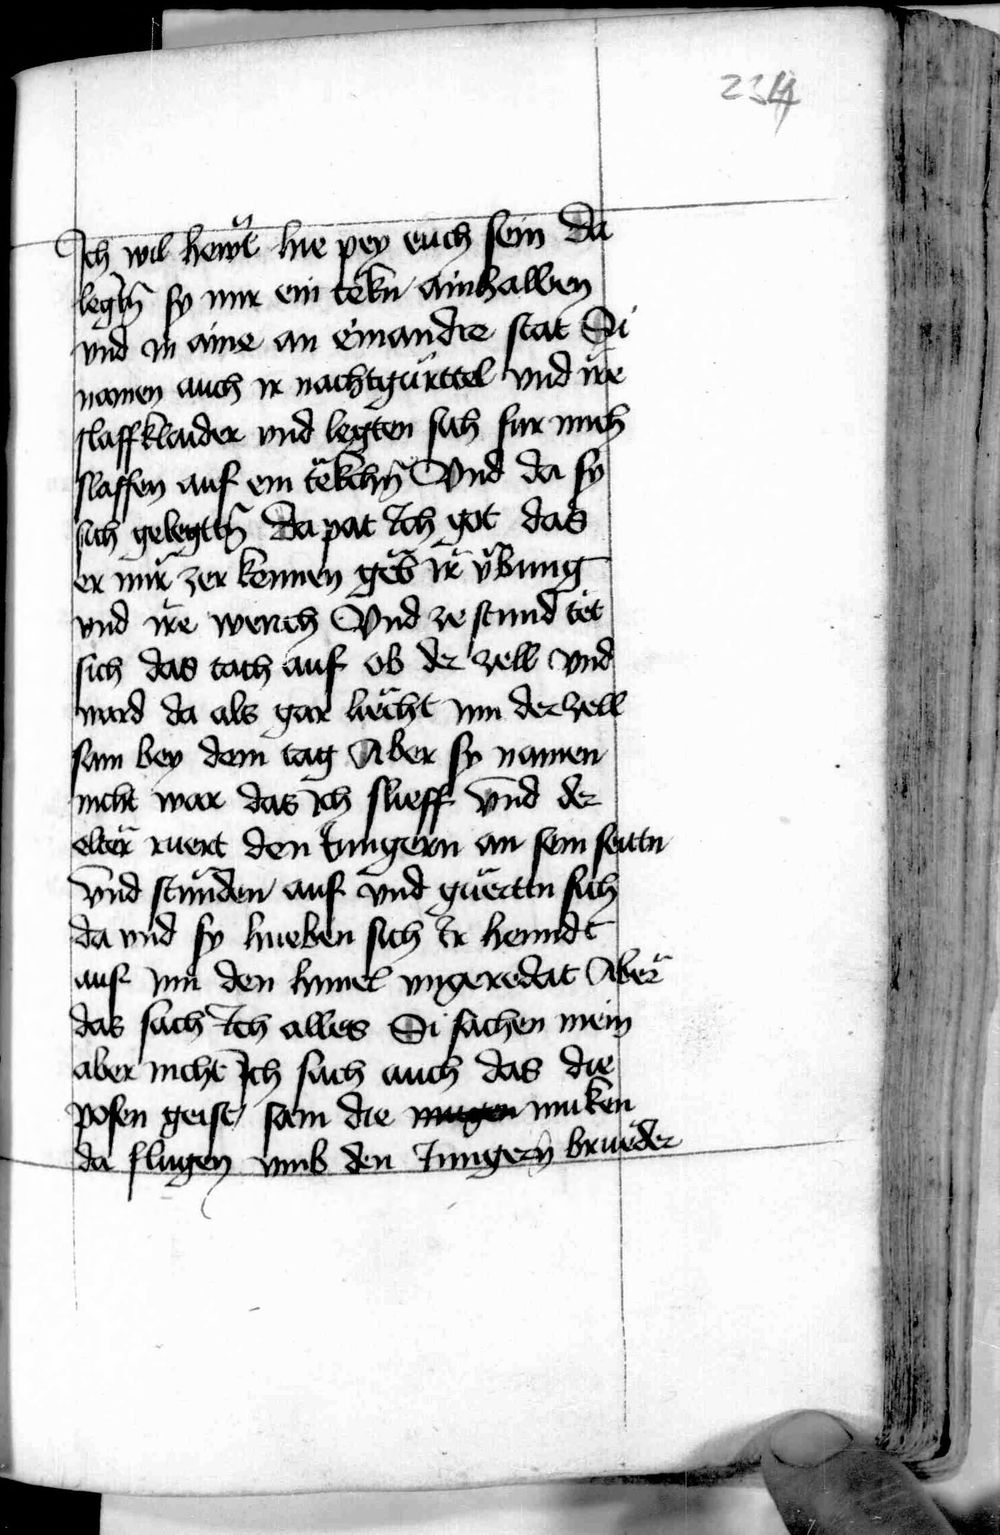 234
Ich wil hewt hie pey euch sein Da
legtn̄ sy mir ein tekn ainhalben
vnd in aine an einandre stat Si
namen auch ir nachtgürttel vnd ire
slaffklaider vnd legten sich fur mich
slaffen auf ein tëkchn̄ Vnd da sy
sich gelegttn̄ Da pat Ich got das
er mir zer kennen geb ir übung
vnd ire werch Vnd ze stund tet
sich das tach auf ob der zell vnd
ward da als gar liecht inn der zell
sam bey dem tag Aber sy namen
nicht war das Ich slieff Vnd der
elter ruert den Jungern an sein seittn
Vnd stunden auf vnd guertn sich
da vnd sy hueben sich Ir henndt
auf inn den himel vngeredat Aber
das sach Ich alles Si sachen mein
aber nicht Ich sach auch das die
posen geist sam die mugen muken
da flugen vmb den Jungern̄ brueder